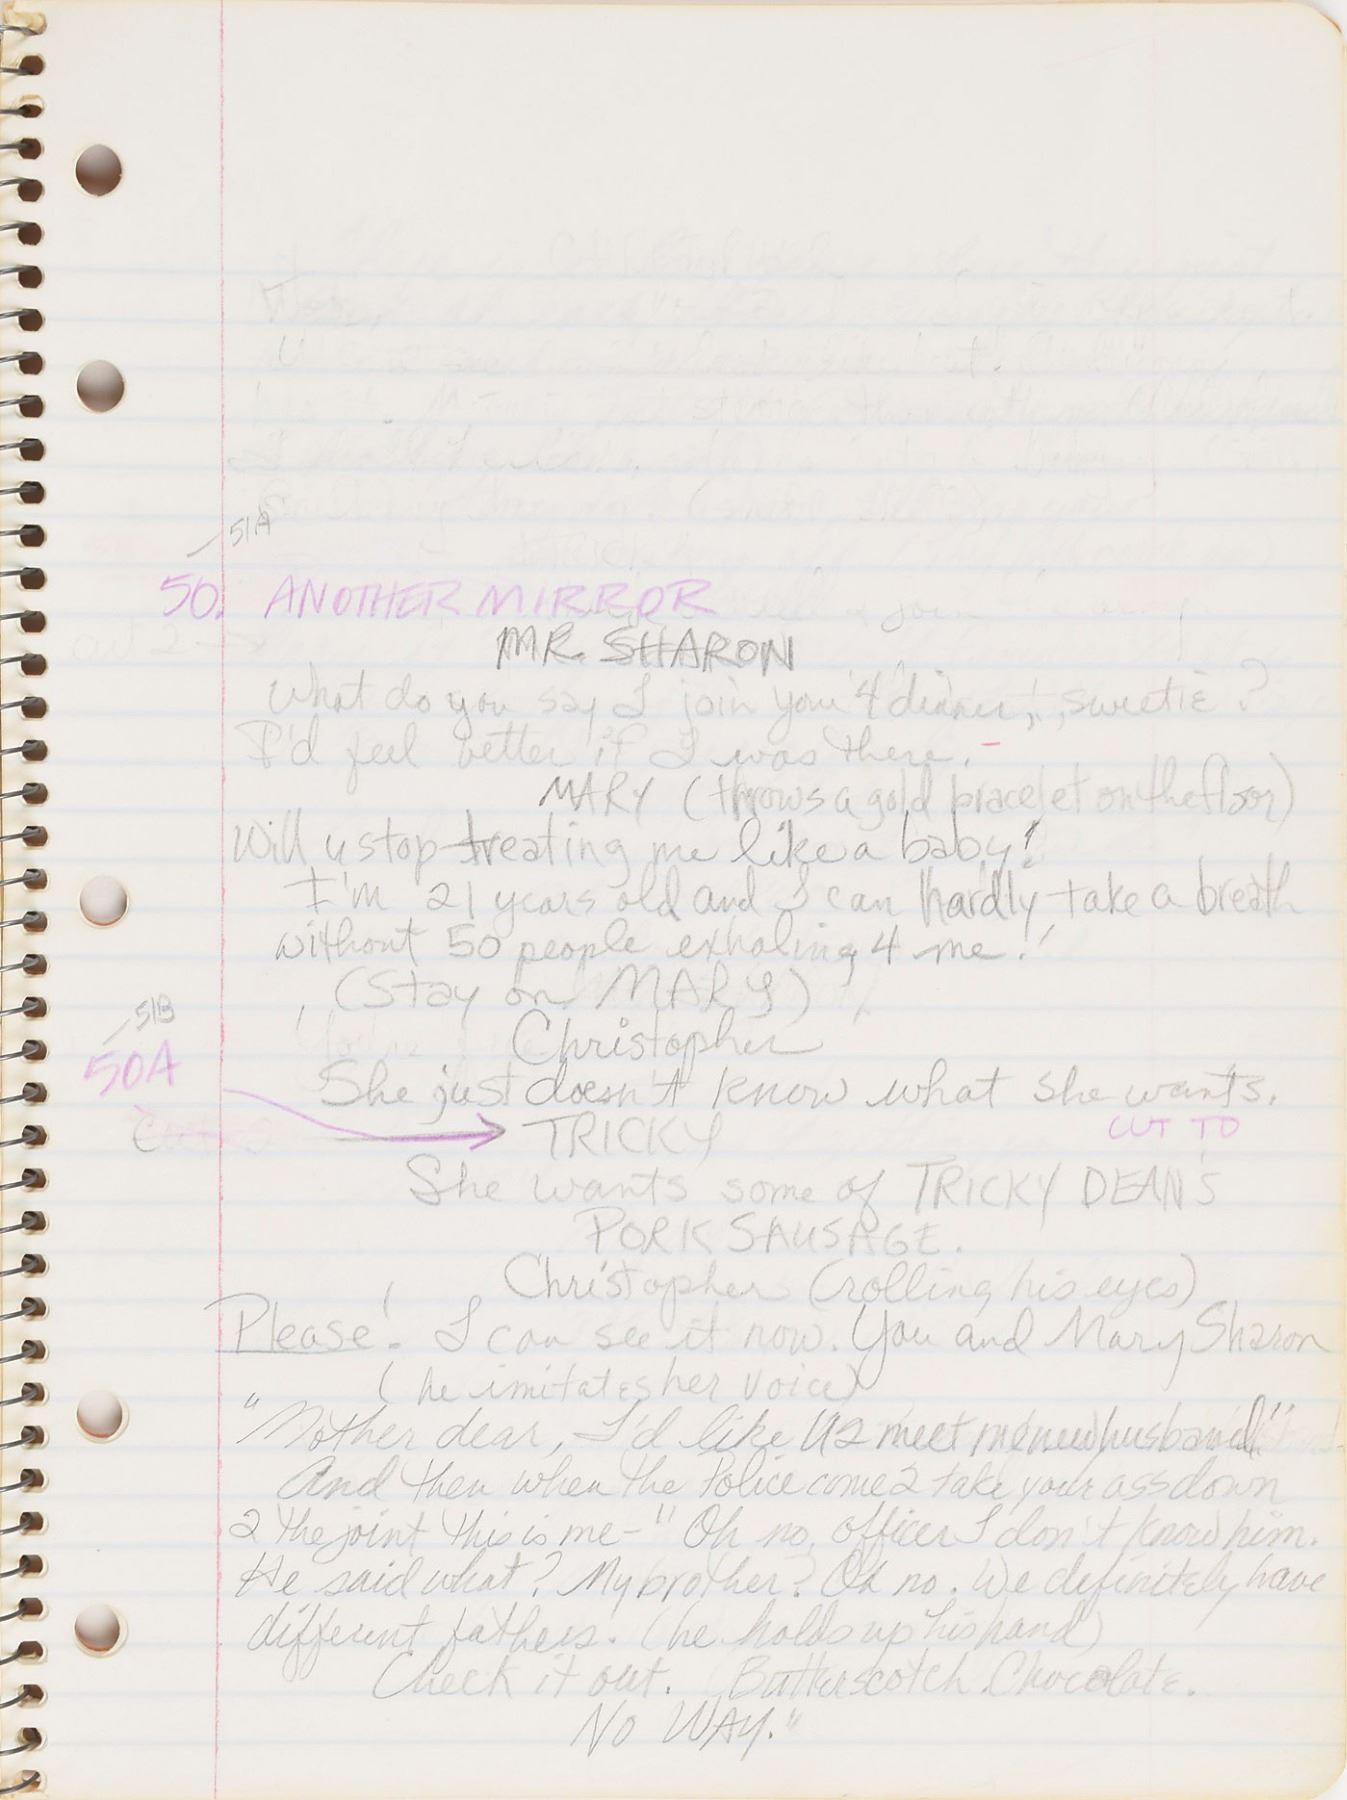 51A
50. ANOTHER MIRROR
MR. SHARON
What do you say I join you 4 dinner, sweetie?
I'd feel better if I was there.
MARY (throws a gold bracelet on the floor)
Will u stop treating me like a baby!
I'm 21 years old and I can hardly take a breath
without 50 people exhaling 4 me!
(Stay on MARY)
51B
Christopher
50A
She just doesn't know what she wants.
TRICKY CUT TO
She wants some of TRICKY DEAN'S
PORK SAUSAGE.
Christopher (rolling his eyes)
Please! I can see it now. You and Mary Sharon
(he imitates her voice)
"Mother dear, I'd like U 2 meet my new husband"
And then when the Police come 2 take your ass down
2 the joint this is me - "Oh no, officer I don't know him.
He said what? My brother? Oh no. We definitely have
different fathers. (he holds up his hand)
Check it out. Butterscotch. Chocolate.
NO WAY."